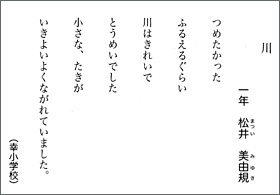 川
一年　松井　美由規
まつい　みゆき
つめたかった
ふるえるぐらい
川はきれいで
とうめいでした
小さな、たきが
いきよいよくながれていました。
（幸小学校）